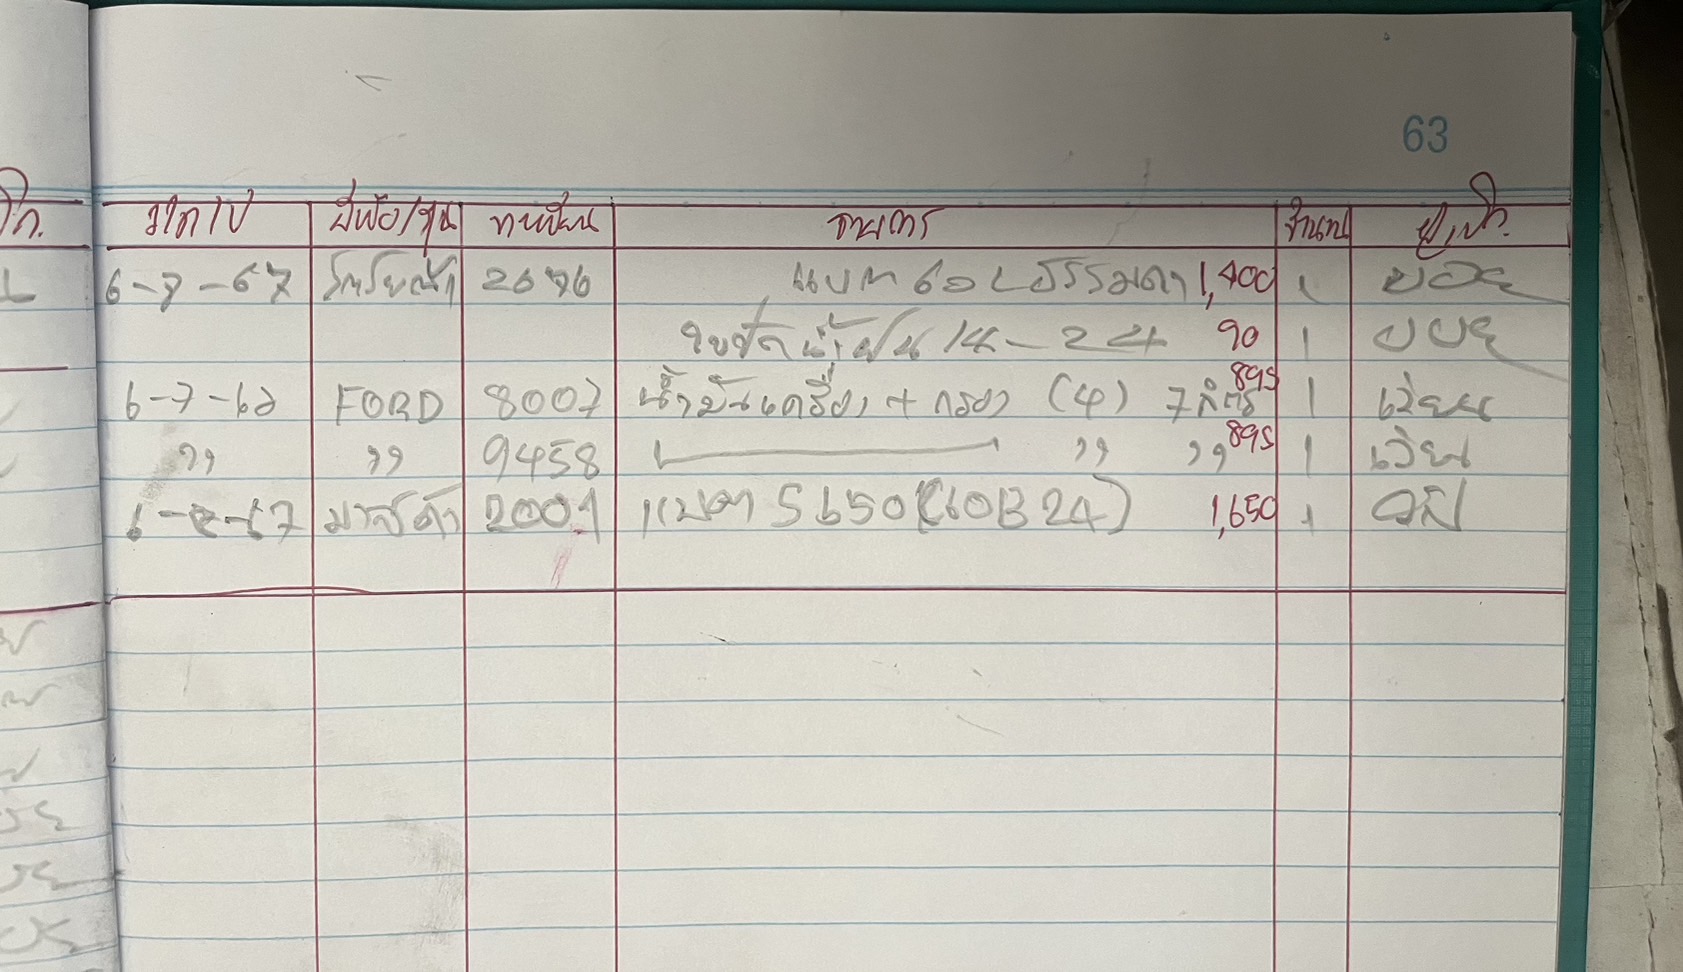 63
ว/ด/ป ยี่ห้อ/รุ่น ทะเบียน รายการ จำนวน ผู้เบิก.
6-7-67 โตโยต้า 2676 แบต 60L ธรรมดา 1,400 1
ใบปัดน้ำฝน 14-24 90 1
6-7-67 FORD 8007 น้ำมันเครื่อง + กรอง (4) 7 ลิตร 895 1 เวียน
,, ,, 9458 ,, ,, 895 1 เวียน
6-7-67 มาสด้า 2001 แบต S650(60B24) 1,650 1